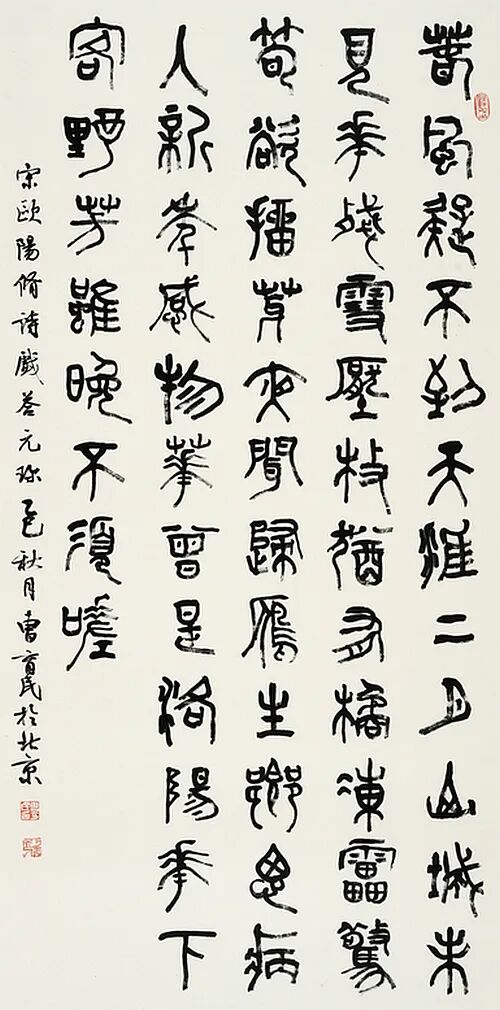 春風疑不到天涯二月山城未
見花殘雪壓枝猶有橘凍雷驚
筍欲抽芽夜聞歸雁生鄉思病
入新年感物華曾是洛陽花下
客野芳雖晚不須嗟
宋歐陽脩詩戲答元珍乙巳秋月曹育民於北京